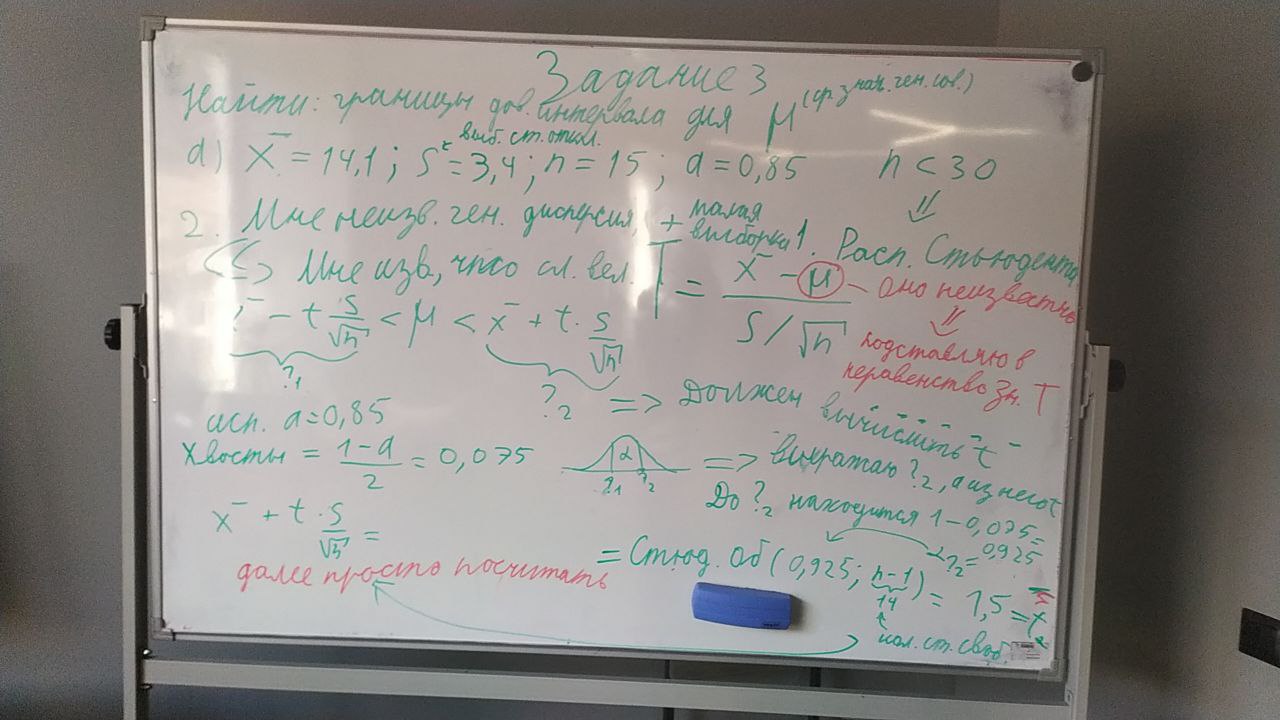 Задание 3
Найти: границы дов. интервала для μ (ср. знач. ген. сов.)
выб. ст. откл.
d) x̄ = 14,1 ; S² = 3,4 ; n = 15 ; α = 0,85 n < 30
⇓
2. Мне неизв. ген. дисперсия, + малая выборка! Расп. Стьюдента
Мне изв, что сл. вел. T = (x̄ − μ) / (S/√n) — оно неизвестно
⇓
подставляю в
неравенство зн. T
x̄ − t S/√n < μ < x̄ + t · S/√n
?₁ ?₂ => Должен вычислить t
исп. α = 0,85
Хвосты = (1−α)/2 = 0,075 α ?₁ ?₂ => выражаю ?₂, а из него t
До ?₂ находится 1 − 0,075 =
= 0,925
x̄ + t · S/√n =
= Стюд. Об (0,925; n−1) = 1,5 = t
14
далее просто посчитать
кол. ст. своб.